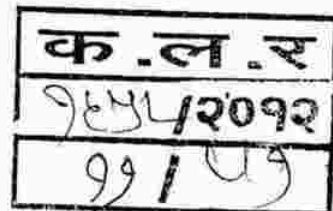 क.ल.र
१६५५/२०१२
११/५१